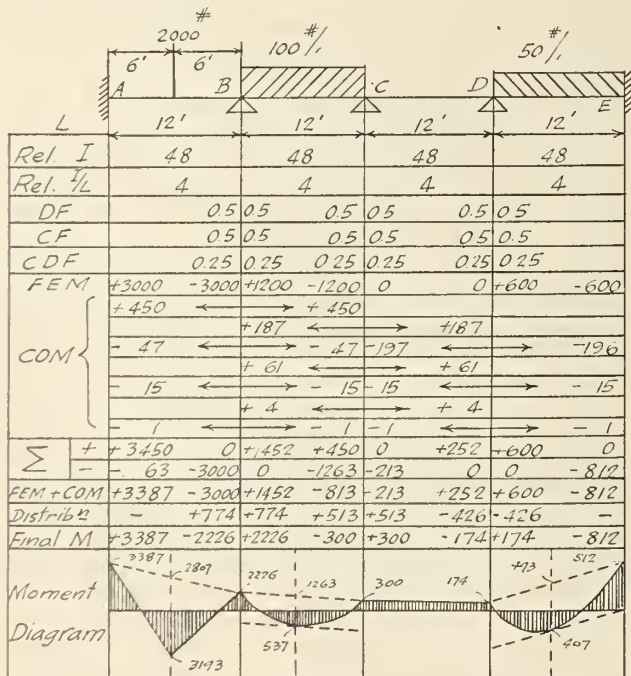 2000 #
100 #/,
50 #/,
6' 6'
A B C D E
L 12' 12' 12' 12'
Rel. I 48 48 48 48
Rel. I/L 4 4 4 4
DF 0.5 0.5 0.5 0.5 0.5 0.5
CF 0.5 0.5 0.5 0.5 0.5 0.5
CDF 0.25 0.25 0.25 0.25 0.25 0.25
FEM +3000 -3000 +1200 -1200 0 0 +600 -600
+450 +450
+187 +187
COM - 47 - 47 -197 -196
+ 61 + 61
- 15 - 15 - 15 - 15
+ 4 + 4
- 1 - 1 - 1 - 1
Σ + + 3450 0 +1452 +450 0 +252 +600 0
- - 63 -3000 0 -1263 -213 0 0 -812
FEM + COM +3387 -3000 +1452 -813 -213 +252 +600 -812
Distribn - +774 +774 +513 +513 -426 -426 -
Final M +3387 -2226 +2226 -300 +300 -174 +174 -812
Moment
Diagram
3387 2807 2226 1263 300 174 512
3193 537 407